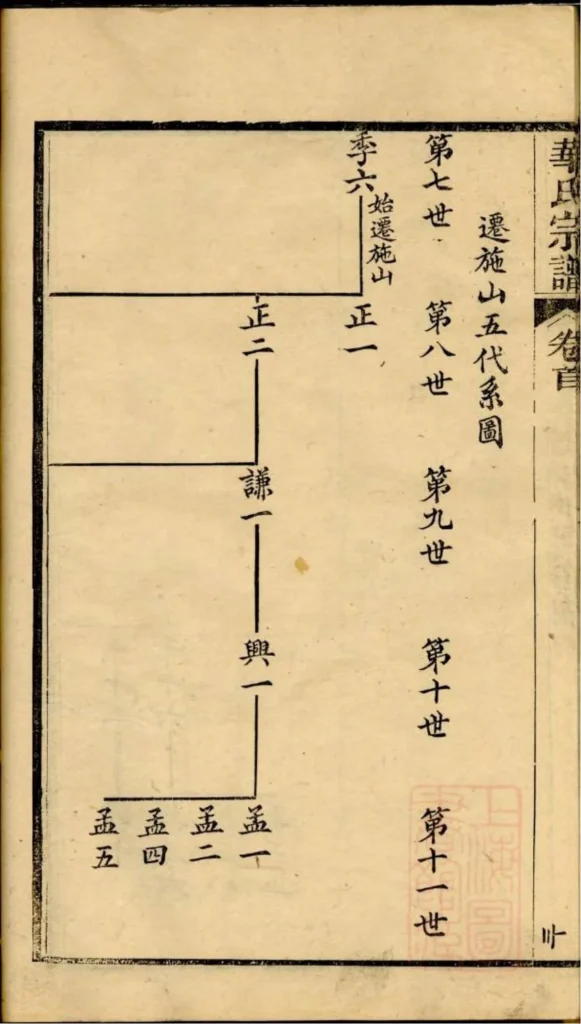 華氏宗譜
卷首
遷施山五代系圖
第七世
第八世
第九世
第十世
第十一世
季六
始遷施山
正一
正二
謙一
興一
孟一
孟二
孟四
孟五